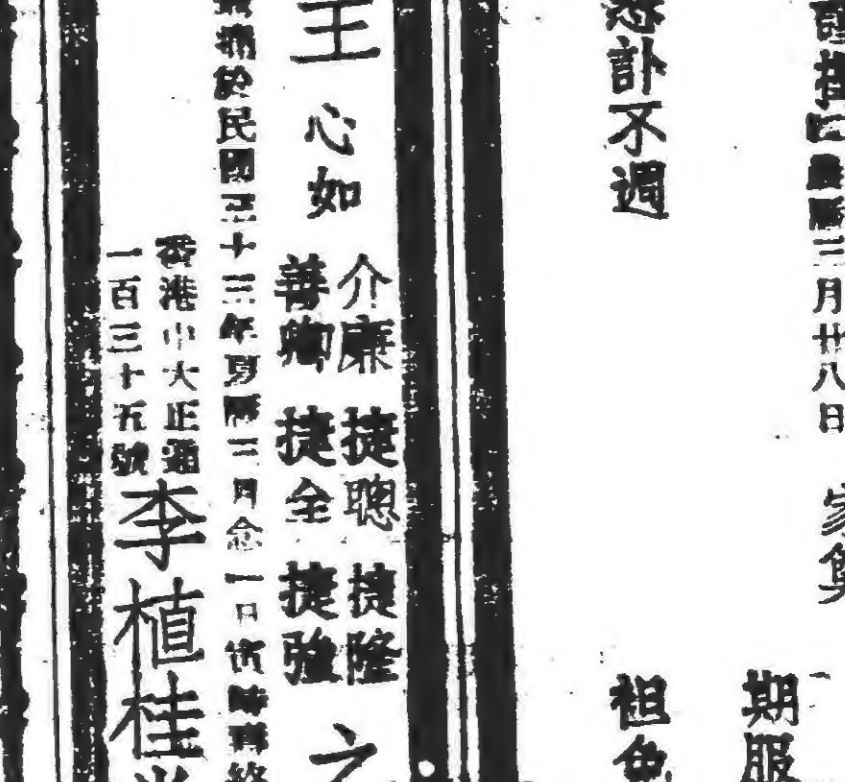 月廿八日
家奠
期服
訃不週
袒免
王 心如 介廉 捷聰 捷隆
善卿 捷全 捷強 之
於民國三十三年夏曆三月念一日寅時壽終
香港中大正通
一百三十五號
李植桂